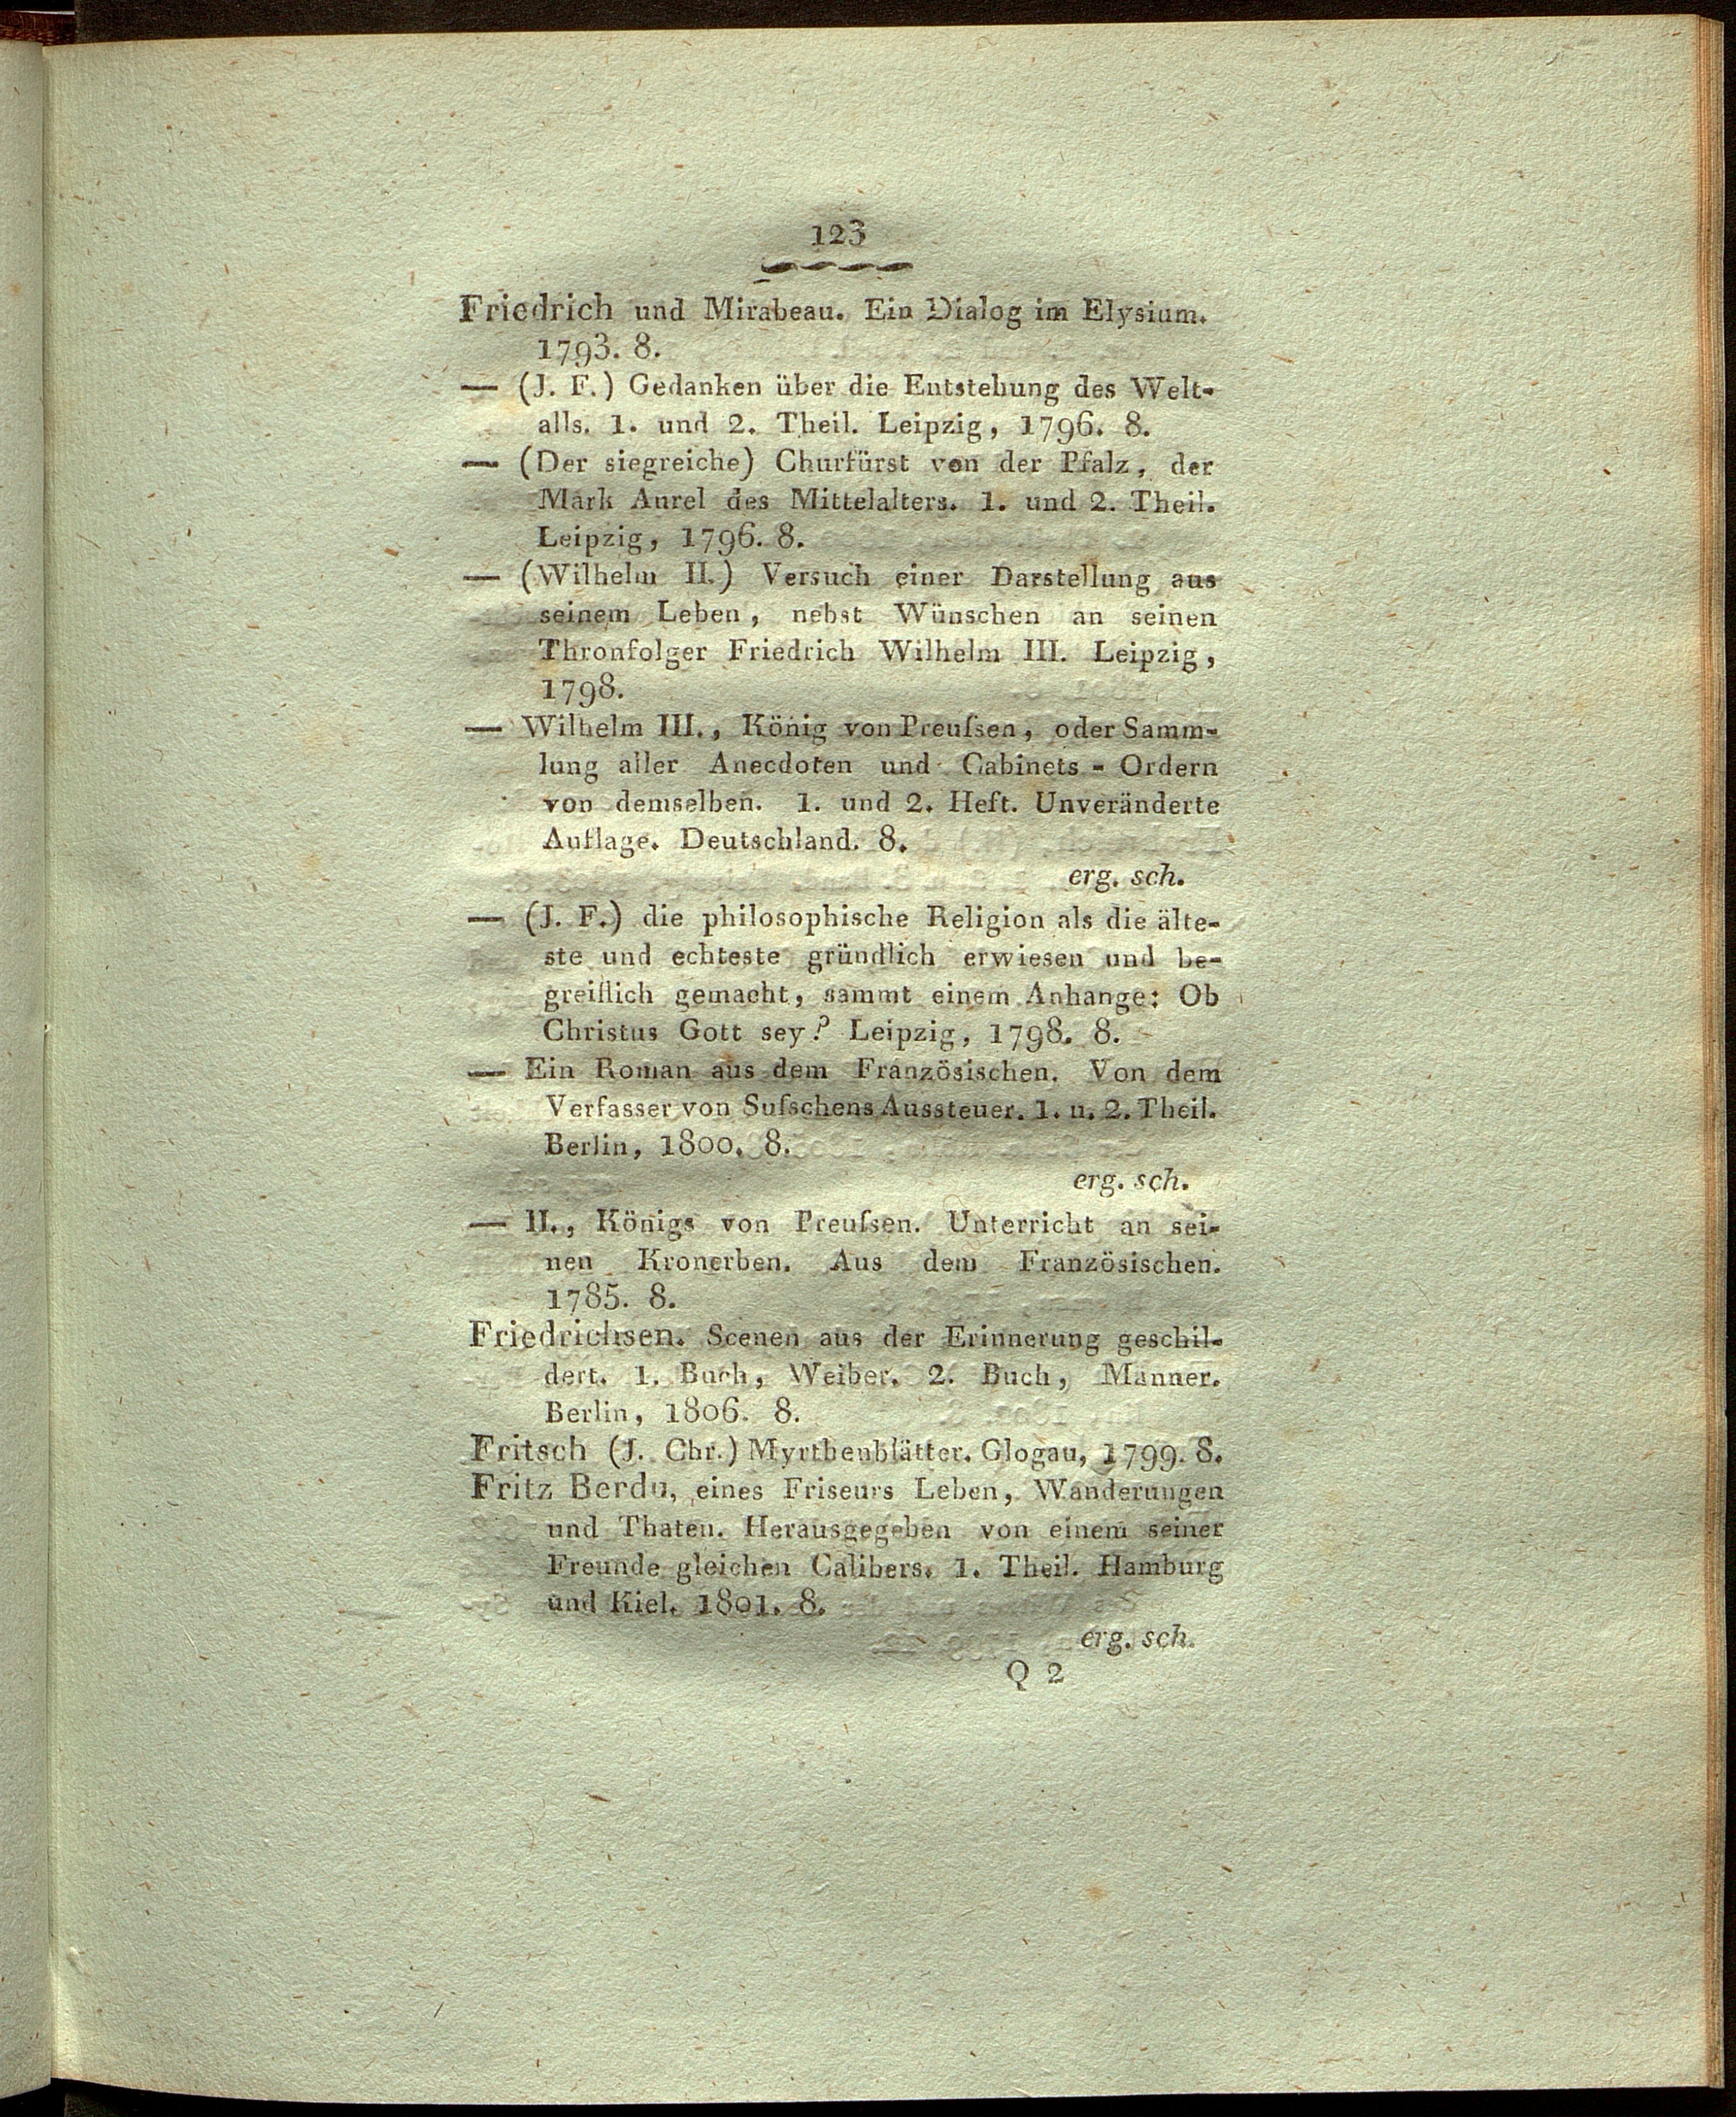 123
Friedrich und Mirabeau. Ein Dialog im Elysium.
1793. 8.
— (J. F.) Gedanken über die Entstehung des Welt-
alls. 1. und 2. Theil. Leipzig, 1796. 8.
— (Der siegreiche) Churfürst von der Pfalz, der
Mark Aurel des Mittelalters. 1. und 2. Theil.
Leipzig, 1796. 8.
— (Wilhelm II.) Versuch einer Darstellung aus
seinem Leben, nebst Wünschen an seinen
Thronfolger Friedrich Wilhelm III. Leipzig,
1798.
— Wilhelm III., König von Preuſsen, oder Samm-
lung aller Anecdoten und Cabinets - Ordern
von demselben. 1. und 2. Heft. Unveränderte
Auflage. Deutschland. 8.
erg. sch.
— (J. F.) die philosophische Religion als die älte-
ste und echteste gründlich erwiesen und be-
greiflich gemacht, sammt einem Anhange: Ob
Christus Gott sey? Leipzig, 1798. 8.
— Ein Roman aus dem Französischen. Von dem
Verfasser von Suſschens Aussteuer. 1. u. 2. Theil.
Berlin, 1800. 8.
erg. sch.
— II., Königs von Preuſsen. Unterricht an sei-
nen Kronerben. Aus dem Französischen.
1785. 8.
Friedrichsen. Scenen aus der Erinnerung geschil-
dert. 1. Buch, Weiber. 2. Buch, Männer.
Berlin, 1806. 8.
Fritsch (J. Chr.) Myrthenblätter. Glogau, 1799. 8.
Fritz Berdu, eines Friseurs Leben, Wanderungen
und Thaten. Herausgegeben von einem seiner
Freunde gleichen Calibers. 1. Theil. Hamburg
und Kiel. 1801. 8.
erg. sch.
Q 2